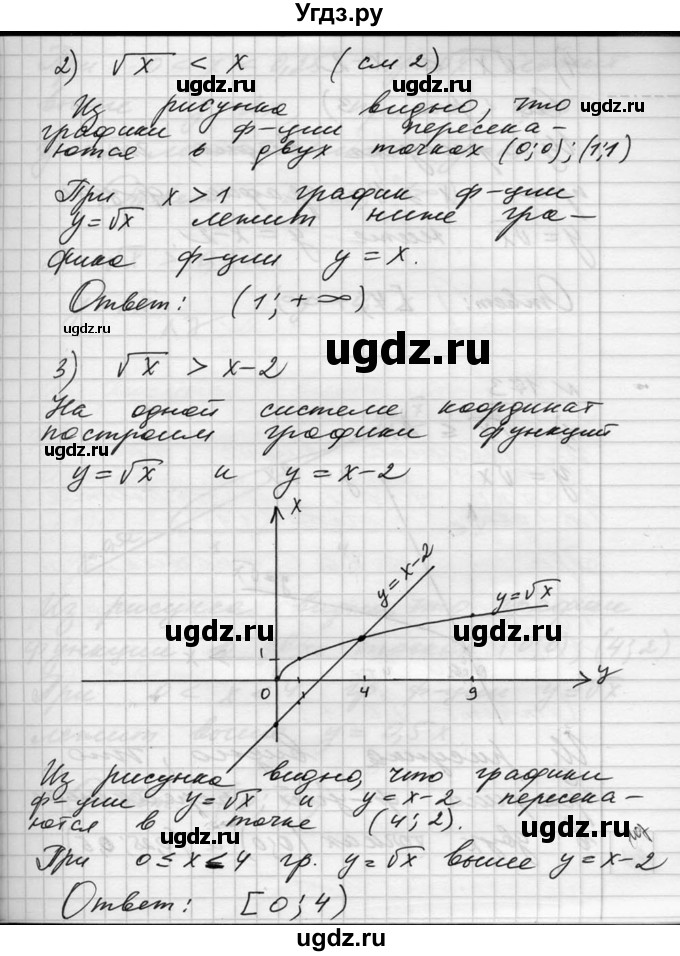 Угдз.ру
2) √x < x (см 2)
ugdz.ru ugdz.ru
Из рисунка видно, что
графики ф-ции пересека-
ются в двух точках (0;0); (1;1)
ugdz.ru ugdz.ru
При x > 1 график ф-ции
y = √x лежит ниже гра-
ugdz.ru
фика ф-ции y = x.
Ответ: (1; +∞)
ugdz.ru
ugdz.ru
3) √x > x-2
На одной системе координат
построим графики функций
ugdz.ru ugdz.ru
y = √x и y = x-2
x
y = x-2
y = √x
ugdz.ru ugdz.ru
1
0 1 4 9 y
ugdz.ru
Из рисунка видно, что графики
ф-ции y = √x и y = x-2 пересека-
ются в точке (4; 2).
ugdz.ru ugdz.ru
При 0 ≤ x < 4 гр. y = √x выше y = x-2
Ответ: [0; 4)
ugdz.ru
ugdz.ru